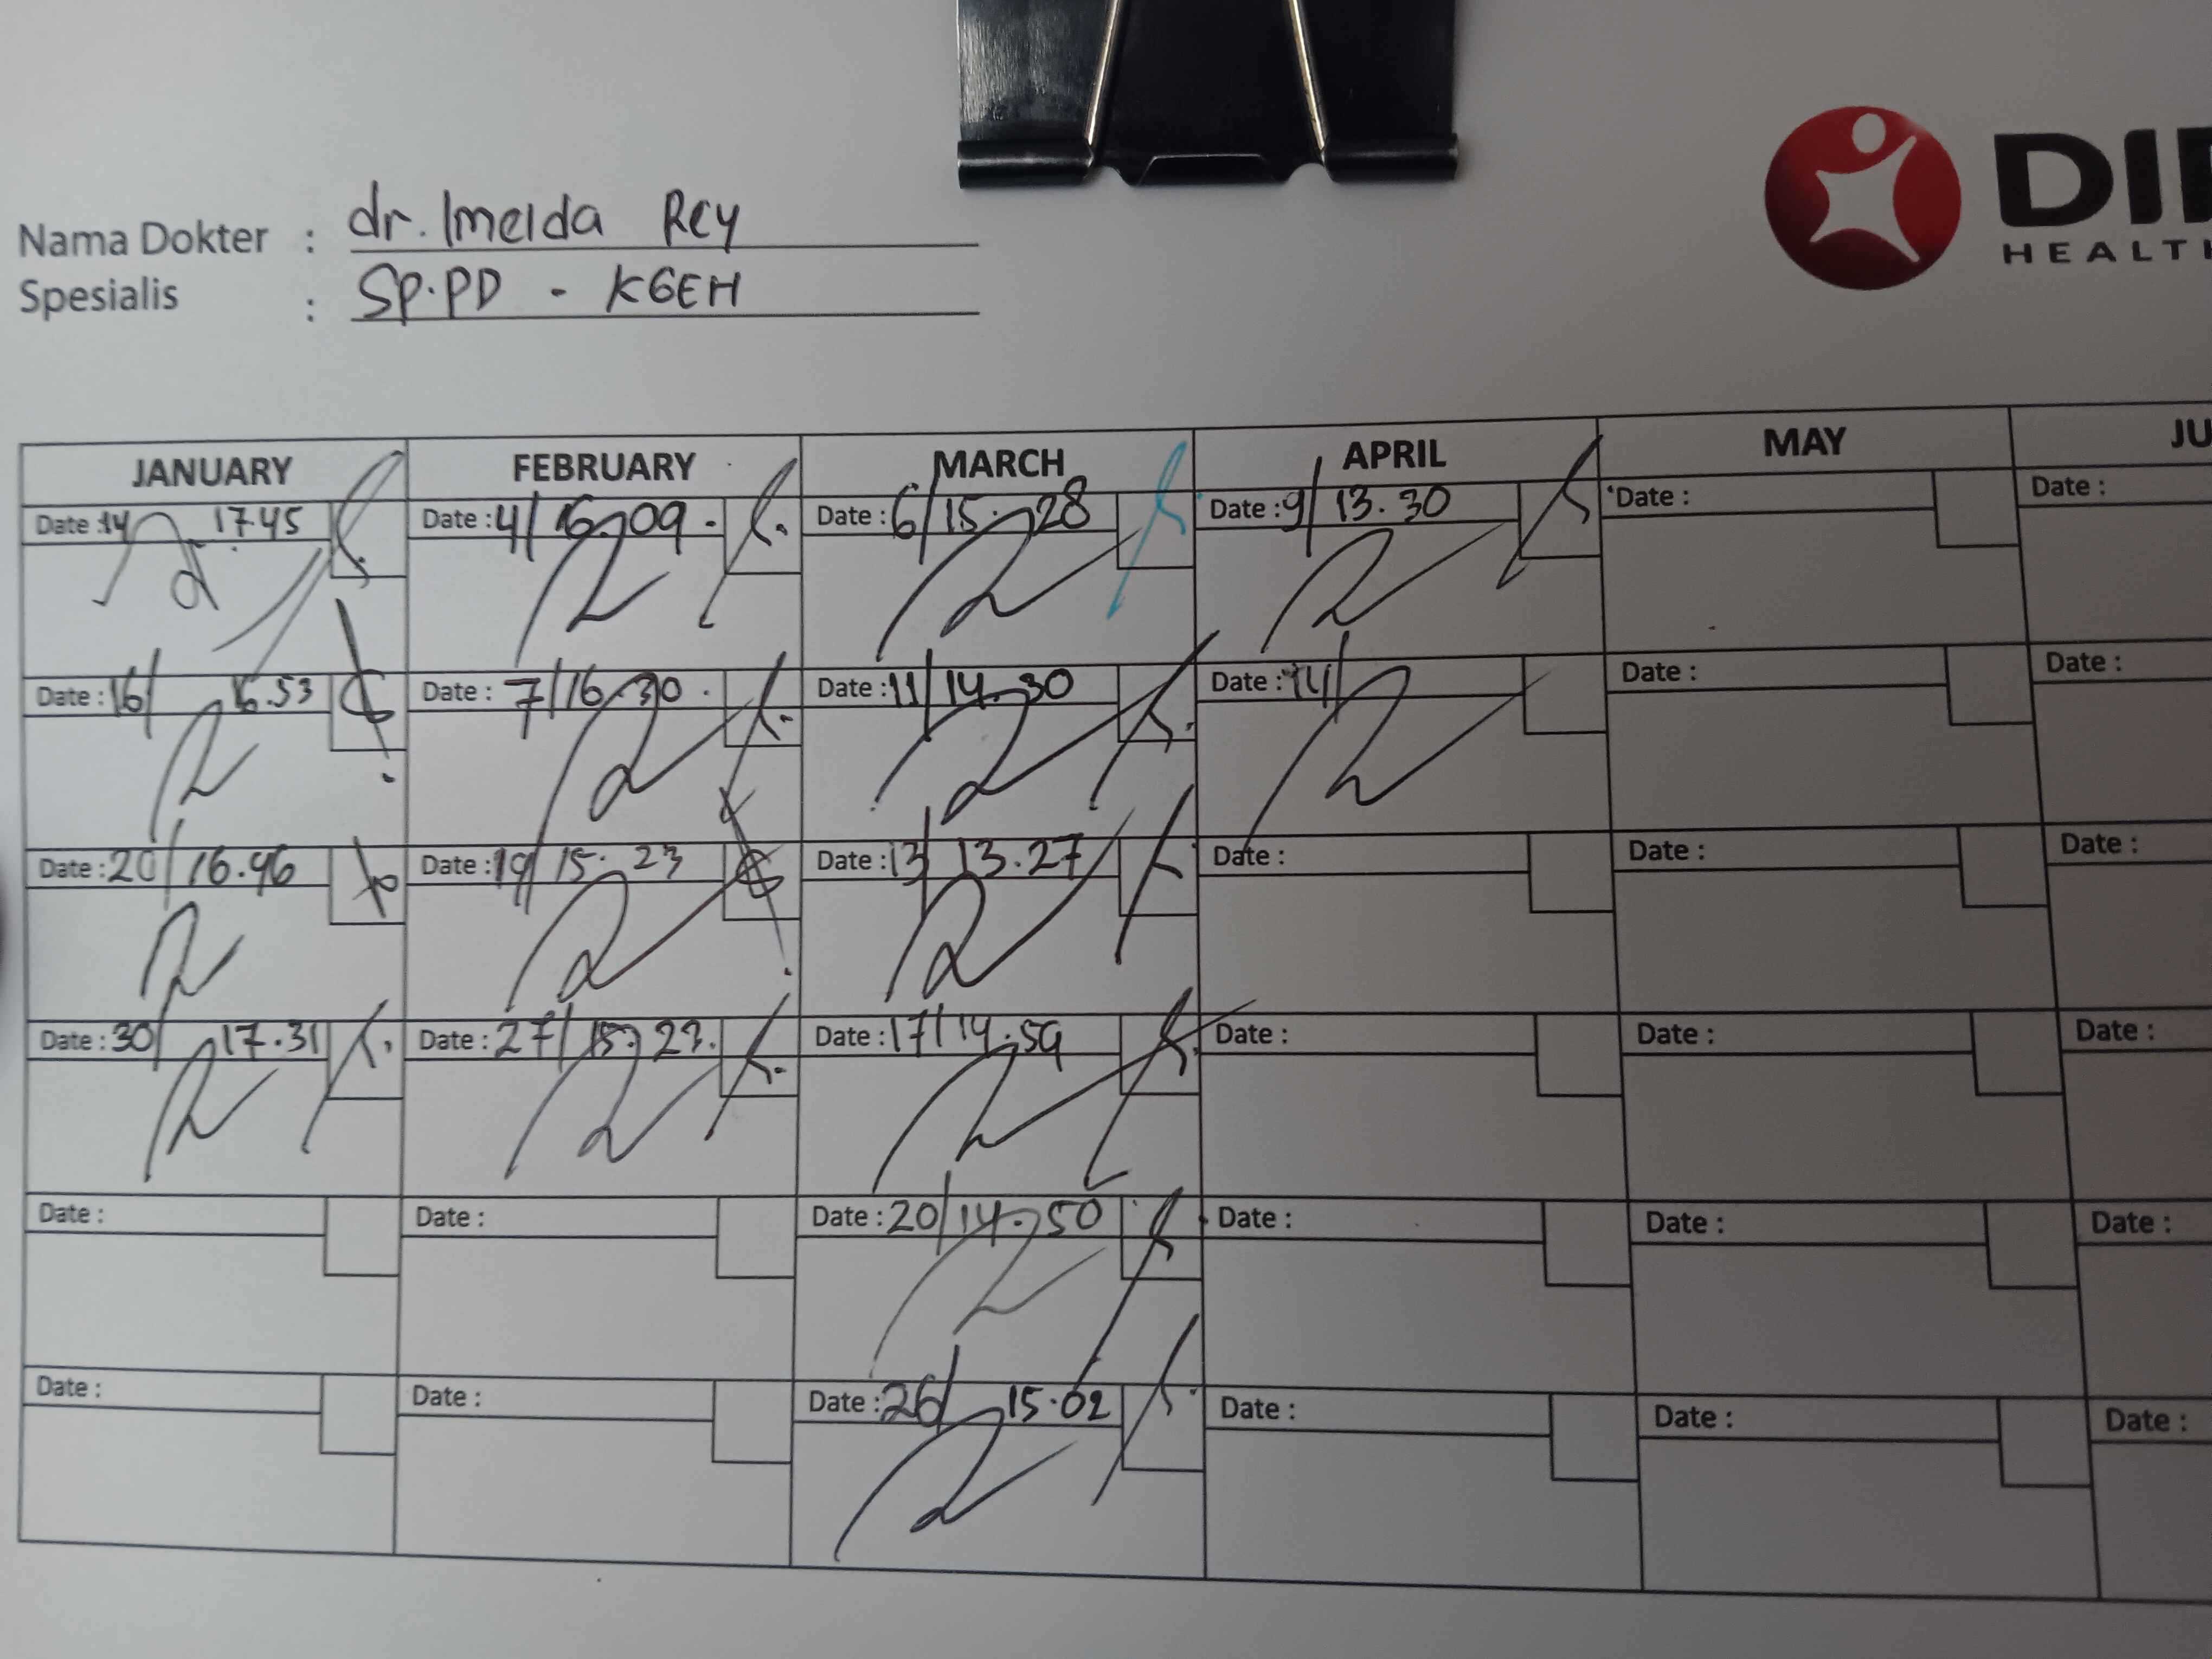 Nama Dokter : dr. Imelda Rey
Spesialis : Sp.PD - KGEH
HEALTH
JANUARY FEBRUARY MARCH APRIL MAY
Date : 14 17.45 Date : 4/ 16.09 Date : 6/ 15.28 Date : 9/ 13.30 Date : Date :
Date : 16/ 16.53 Date : 7/ 16.30 Date : 11/ 14.30 Date : 14/ Date : Date :
Date : 20/ 16.46 Date : 19/ 15.23 Date : 13/ 13.27 Date : Date : Date :
Date : 30/ 17.31 Date : 27/ 15.23. Date : 17/ 14.59 Date : Date : Date :
Date : Date : Date : 20/ 14.50 Date : Date : Date :
Date : Date : Date : 26/ 15.02 Date : Date : Date :